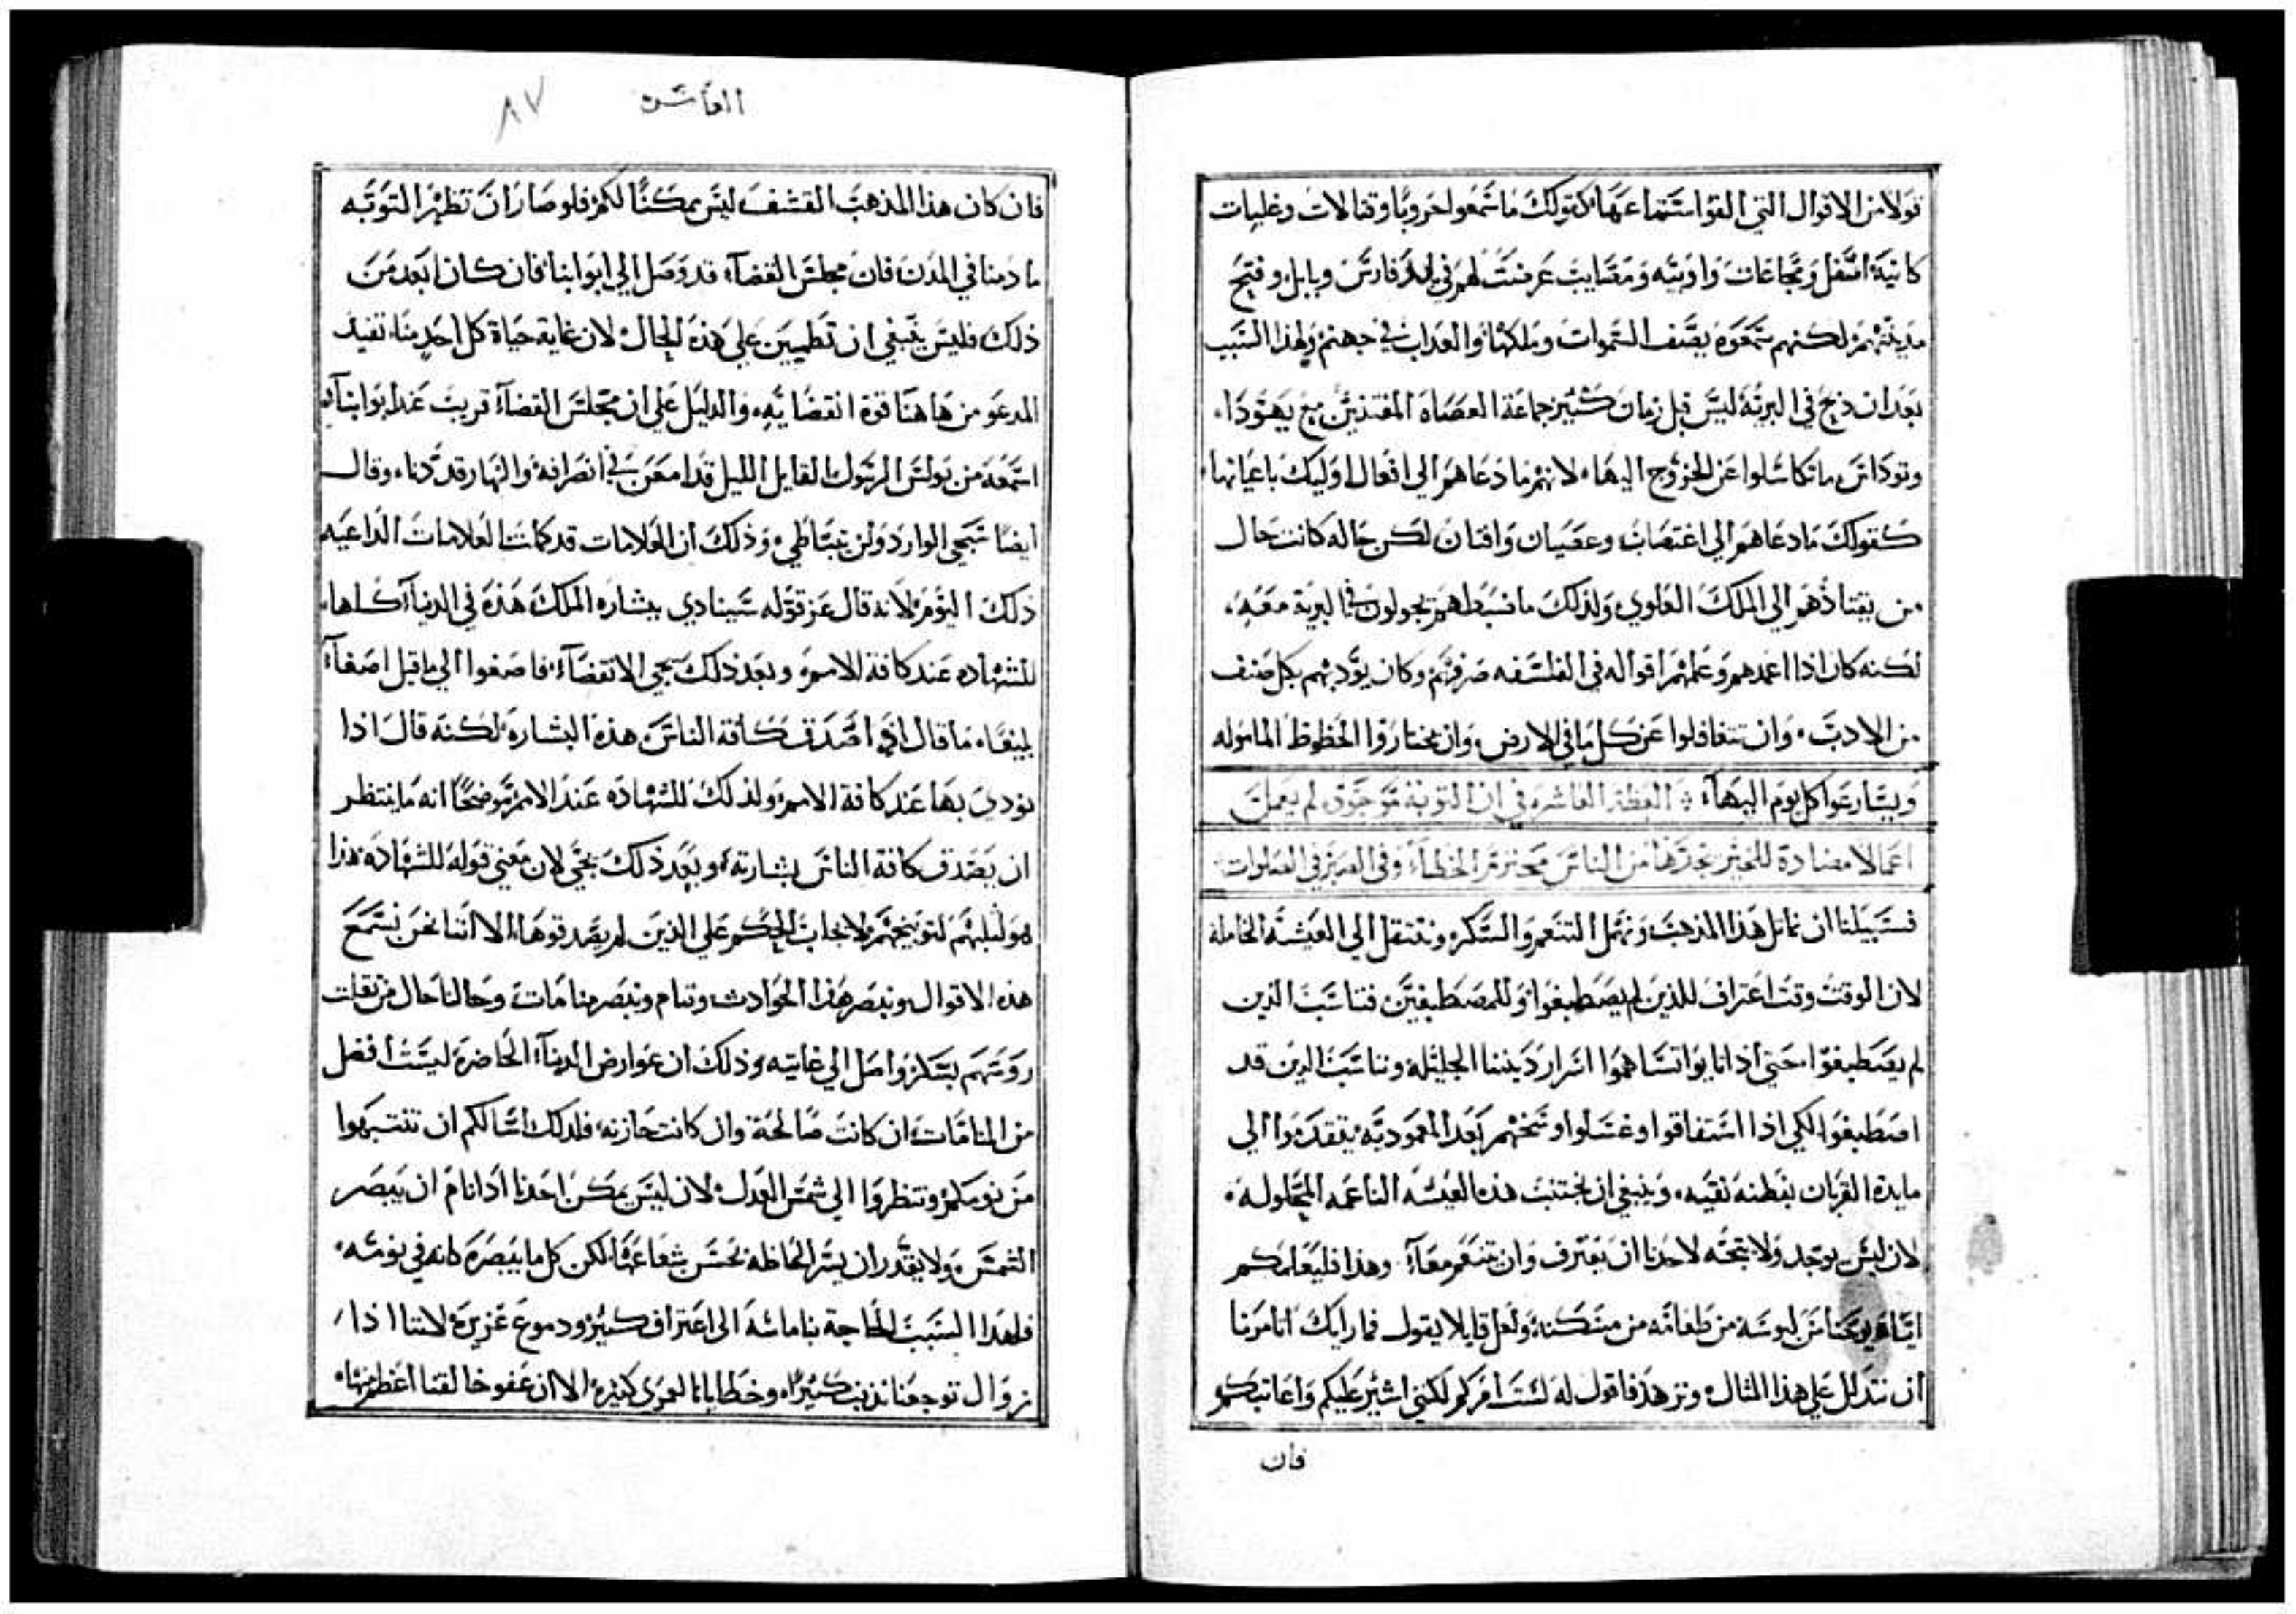 قولا من الاقوال التي القوا استماعها كقولك ما سمعوا حروبا وقتالات وغلبات
كاينة اسفل ومجاعات واوبيه ومصايب عرضت لهم في بلد فارس وبابل وفتح
مدينتهم لكنهم سمعوه يصف السموات وملكها والعداب في جهنم ولهذا السبب
بعد ان ذبح في البرية ليس قبل زمان كثير جماعة العصاه المفتنين مع يهودا
وتوداس ما تكاسلوا عن الخروج اليها لانهم ما دعاهم الى افعال اوليك باعيانها
كقولك ما دعاهم الي اغتصاب وعصيان وافتنان لكن حاله كانت حال
من يقتادهم الي الملك العلوي ولذلك ما نسبطهم يجولون في البرية معه
لكنه كان اذا اعمدهم وعلمهم اقواله في الفلسفه صرفهم وكان يؤدبهم بكل صنف
من الادب وان تتغافلوا عن كل ما في الارض وان يختاروا الحظوظ المامولة
ويسارعوا كل يوم اليها العظة العاشره في ان التوبة لم يعمل
اعمالا مضادة للخير من الناس محترم الخطاء وفي الصلوات
فسبيلنا ان نماثل هذا المذهب ونهمل التنعم والسكر وننتقل الي العيشة الخاملة
لان الوقت وقت اعتراف للذين لم يصطبغوا وللمصطبغين فتاسب الذين
لم يصطبغوا حتي اذا تابوا تساهموا اسرار ديننا الجليلة وتناسب الدين قد
اصطبغوا لكي اذا استفاقوا وغسلوا وسخهم بعد المعموديه يتقدموا الي
مايدة القربان بفطنة نقيه وينبغي ان نجتنب هذه العيشه الناعمه المحلولة
لان ليس يوجد ولا يتجه لاحدنا ان يعترف وان يتنعم معا وهذا فليعلمكم
اياه يوحنا من لبوسه من طعامه من مسكنة ولعل قايلا يقول فما رايك اتامرنا
ان نتدلل علي هذا المثال ونزهد فاقول له لست امركم لكني اشير عليكم واعاتبكم
فان
العاشره
٨٧
فان كان هذا المذهب القشف ليس ممكنا لكم فلو صار ان تظهر التوبه
ما دمنا في المدن فان مجلس القضاء قد وصل الي ابوابنا فان كان ابعد من
ذلك فليس ينبغي ان تطمين علي هذه الحال لان غاية حياة كل احد منا تفيد
المدعو من هاهنا قوة انقضاييه والدليل علي ان مجلس القضاء قريب عند ابوابنا
استمعه من بولس الرسول القايل الليل قد امعن في انصرافه والنهار قد دنا وقال
ايضا سيجي الوارد ولن يتباطي وذلك ان العلامات قد كملت العلامات الداعيه
ذلك اليوم لانه قال عز قوله سينادي ببشاره الملك هذه في الدنيا كلها
للشهاده عند كافة الامم وبعد ذلك سيجي الانقضاء فاصغوا الي ما قبل اصغاء
بليغا ما قال اذا صدق كافة الناس هذه البشاره لكنه قال اذا
نودي بها عند كافة الامم ولذلك للشهاده عند الامم موضحا انه ما ينتظر
ان يصدق كافة الناس بشارته وبعد ذلك يجي لان معني قوله للشهاده هذا
هو لتوبيخهم لايجاب الحكم علي الذين لم يصدقوها الا اننا نحن نسمع
هذه الاقوال ونبصر هذا الحوادث وننام ونبصر منامات وحالنا حال من ثقلت
روسهم بسكر واصل الي غايته وذلك ان عوارض الدنيا الحاضرة ليست افضل
من المنامات ان كانت صالحة وان كانت حازنه فلذلك اسالكم ان تنتبهوا
من نومكم وتنظروا الي شمس العدل لان ليس يمكن احدنا اذا نام ان يبصر
الشمس ولا يقدر ان يسر الحاظه بحسن شعاعها لكن كل ما يبصره كانه في نومه
فلهذا السبب الحاجة بنا ماسة الى اعتراف كثير ودموع غزيرة لاننا اذا
نزوال توجعنا نذنب كثيرا وخطايانا لعمري كثيره الا ان عفو خالقنا اعظم منها